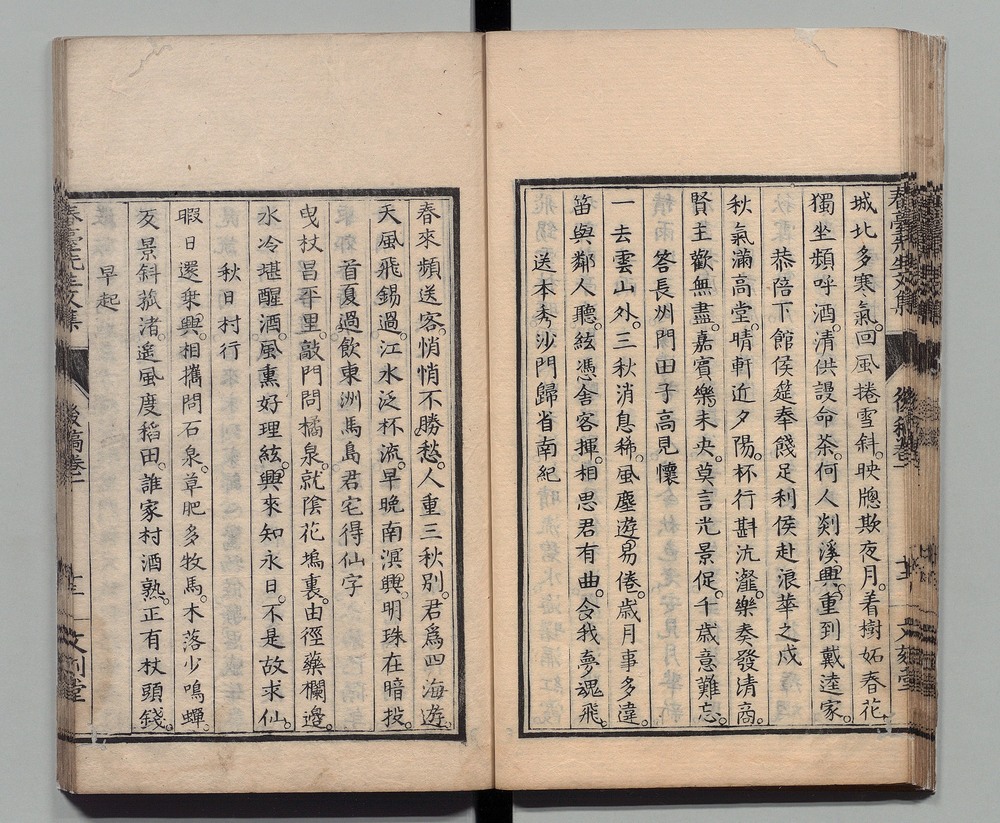 城北多寒氣。回風捲雪斜。映牎欺夜月。着樹妬春花。
獨坐頻呼酒。清供謾命茶。何人剡溪興。重到戴逵家。
恭陪下館侯莚奉餞足利侯赴浪華之戍
秋氣滿高堂。晴軒近夕陽。杯行斟沆瀣。樂奏發清商。
賢主歡無盡。嘉賓樂未央。莫言光景促。千歳意難忘。
答長州門田子高見懷
一去雲山外。三秋消息稀。風塵遊易倦。歳月事多違。
笛與鄰人聽。絃憑舍客揮。相思君有曲。令我夢魂飛。
送本秀沙門歸省南紀
春來頻送客。悄悄不勝愁。人重三秋別。君爲四海遊。
天風飛錫過。江水泛杯流。早晩南溟興。明珠在暗投。
首夏過飲東洲馬島君宅得仙字
曳杖昌平里。敲門問橘泉。就陰花塢裏。由徑藥欄邊。
水冷堪醒酒。風熏好理絃。興來知永日。不是故求仙。
秋日村行
暇日還乘興。相攜問石泉。草肥多牧馬。木落少鳴蟬。
反景斜菰渚。遙風度稻田。誰家村酒熟。正有杖頭錢。
早起